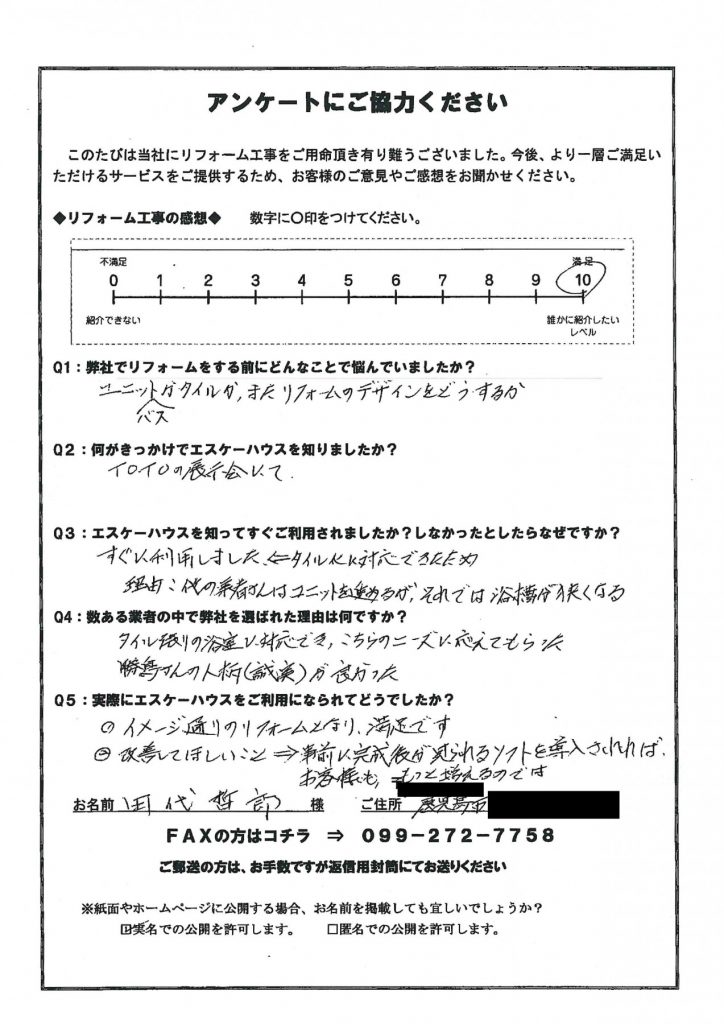 アンケートにご協力ください
このたびは当社にリフォーム工事をご用命頂き有り難うございました。今後、より一層ご満足い
ただけるサービスをご提供するため、お客様のご意見やご感想をお聞かせください。
◆リフォーム工事の感想◆ 数字に〇印をつけてください。
不満足 満足
0 1 2 3 4 5 6 7 8 9 10
紹介できない 誰かに紹介したい
レベル
Q1：弊社でリフォームをする前にどんなことで悩んでいましたか？
ユニットかタイルか，またリフォームのデザインをどうするか
バス
Q2：何がきっかけでエスケーハウスを知りましたか？
イロイロの展示会にて．
Q3：エスケーハウスを知ってすぐご利用されましたか？しなかったとしたらなぜですか？
すぐに利用しました ⇐タイル化に対応できるため
理由：他の業者さんはユニットを進めるが，それでは浴槽が狭くなる
Q4：数ある業者の中で弊社を選ばれた理由は何ですか？
タイル張りの浴室に対応でき，こちらのニーズに応えてもらった
さんの人柄（誠実）が良かった
Q5：実際にエスケーハウスをご利用になられてどうでしたか？
イメージ通りのリフォームとなり，満足です
改善してほしいこと ⇒ 事前に完成後が見られるソフトを導入されれば，
お客様も， もっと増えるのでは
お名前 田代 哲郎 様 ご住所 鹿児島市
FAXの方はコチラ ⇒ 099-272-7758
ご郵送の方は、お手数ですが返信用封筒にてお送りください
※紙面やホームページに公開する場合、お名前を掲載しても宜しいでしょうか？
☑実名での公開を許可します。 □匿名での公開を許可します。